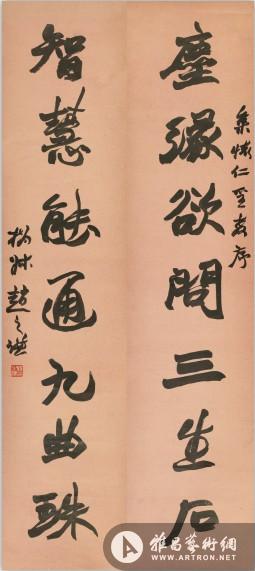 集懷仁聖教序
塵緣欲問三生石
智慧能通九曲珠
撝叔趙之謙
雅昌藝術網
WWW.ARTRON.NET